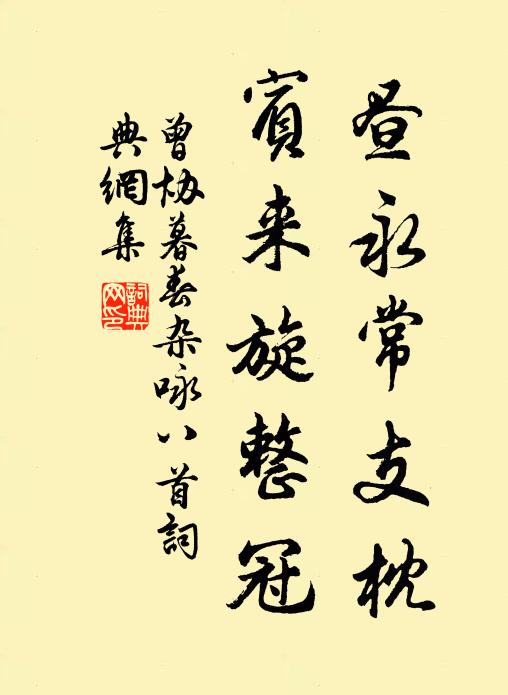 昼永常支枕
賓来旋整冠
曾协暮春杂咏八首詞
典網集
詞典
网印